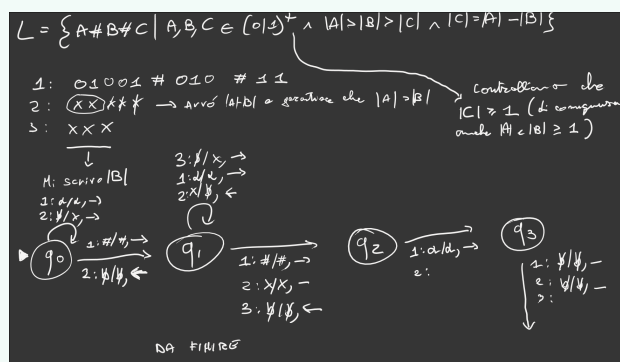 L = {A#B#C | A,B,C ∈ (0|1)⁺ ∧ |A|>|B|>|C| ∧ |C|=|A|-|B|}
1: 01001 # 010 # 11
2: xx*** → Avrò |A|-|B| e garantisce che |A|>|B|
3: xxx
Controlliamo che
|C| ≥ 1 (di conseguenza
anche |A| e |B| ≥ 1)
Mi scrivo |B|
1: α/α, →
2: ƀ/x, →
3: ƀ/x, →
1: α/α, →
2: x/ƀ, ←
q0
1: #/#, →
2: ƀ/ƀ, ←
q1
1: #/#, →
2: x/x, –
3: ƀ/ƀ, ←
q2
1: α/α, →
2:
q3
1: ƀ/ƀ, –
2: ƀ/ƀ, –
3:
DA FINIRE